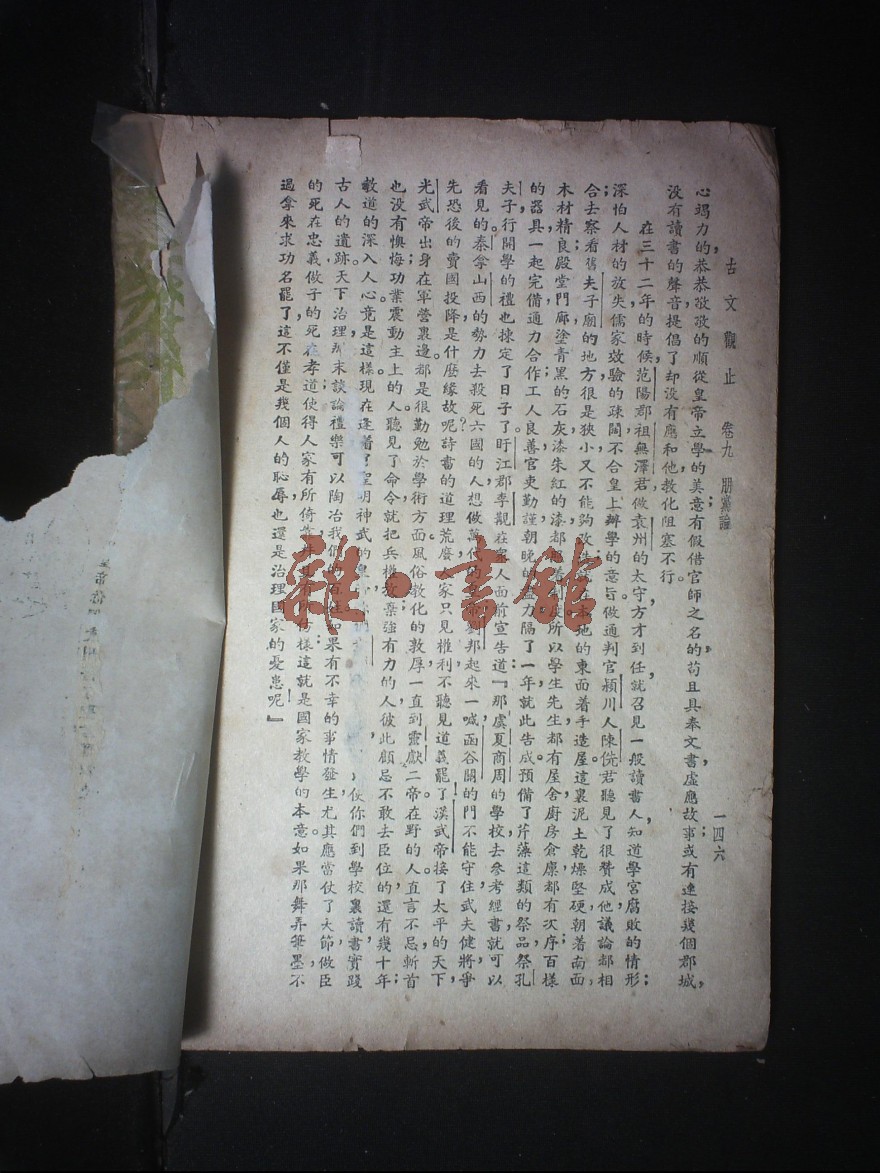 古文觀止 卷九 朋黨論 一四六
心竭力的，恭恭敬敬的順從皇帝立學的美意；有假借官師之名的，苟且具奉文書，虛應故事；或有連接幾個郡城，
没有讀書的聲音。提倡了却没有應和他，教化阻塞不行。
在三十二年的時候，范陽郡祖無澤君，做袁州的太守，方才到任，就召見一般讀書人，知道學宮腐敗的情形；
深怕人材的放失，儒家效驗的疎闊，不合皇上辦學的意旨。做通判官潁川人陳侁君聽見了，很贊成他，議論都相
合。去察看舊夫子廟的地方，很是狹小，又不能夠改
本地的東面，着手造屋；這裏泥土乾燥堅硬，朝着南面，
木材精良；殿堂門廊，塗青黑的石灰，漆朱紅的漆，都
所以學生先生，都有屋舍，廚房倉廩，都有次序，百樣
的器具，一起完備，通力合作；工人良善，官吏勤謹，朝晚
力，隔了一年，就此告成。預備了芹藻這類的祭品，祭孔
夫子，行開學的禮，也揀定了日子了。盱江郡李覯，在
人面前宣告道：『那虞夏商周的學校，去參考經書，就可以
看見的。秦拿山西的勢力，去殺死六國的人，想做萬
劉邦起來一喊，函谷關的門，不能守住，武夫健將，爭
先恐後的賣國投降，是什麼緣故呢？詩書的道理荒廢，
家只見權利，不聽見道義罷了。漢武帝接了太平的天下，
光武帝出身在軍營裏邊，都是很勤勉於學術方面。風俗教化的敦厚，一直到靈獻二帝。在野的人，直言不忌，斬首
也没有懊悔；功業震動主上的人，聽見了命令，就把兵權放棄；強有力的人，彼此顧忌，不敢去臣位的，還有幾十年；
教道的深入人心，竟是這樣。現在逢着了聖明神武的皇
，使你們到學校裏讀書，實踐
古人的遺跡。天下治理，
末談論禮樂，可以陶冶我們的
如果有不幸的事情發生，尤其應當仗了大節，做臣
的死在忠義，做子的死在孝道，使得人家有所倚靠，
樣。這就是國家教學的本意。如果那舞弄筆墨，不
過拿來求功名罷了，這不僅是幾個人的恥辱，也還是治理國家的憂患呢！』
雜·書館